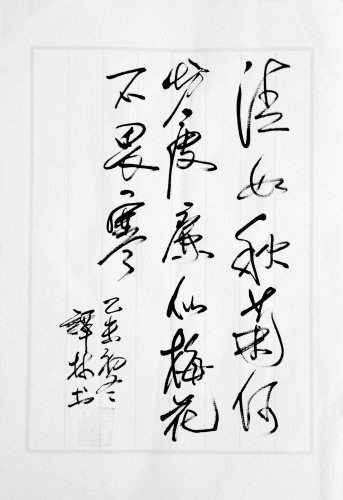 清如秋菊何
妨瘦廉似梅花
不畏寒
乙未初冬
譯林书